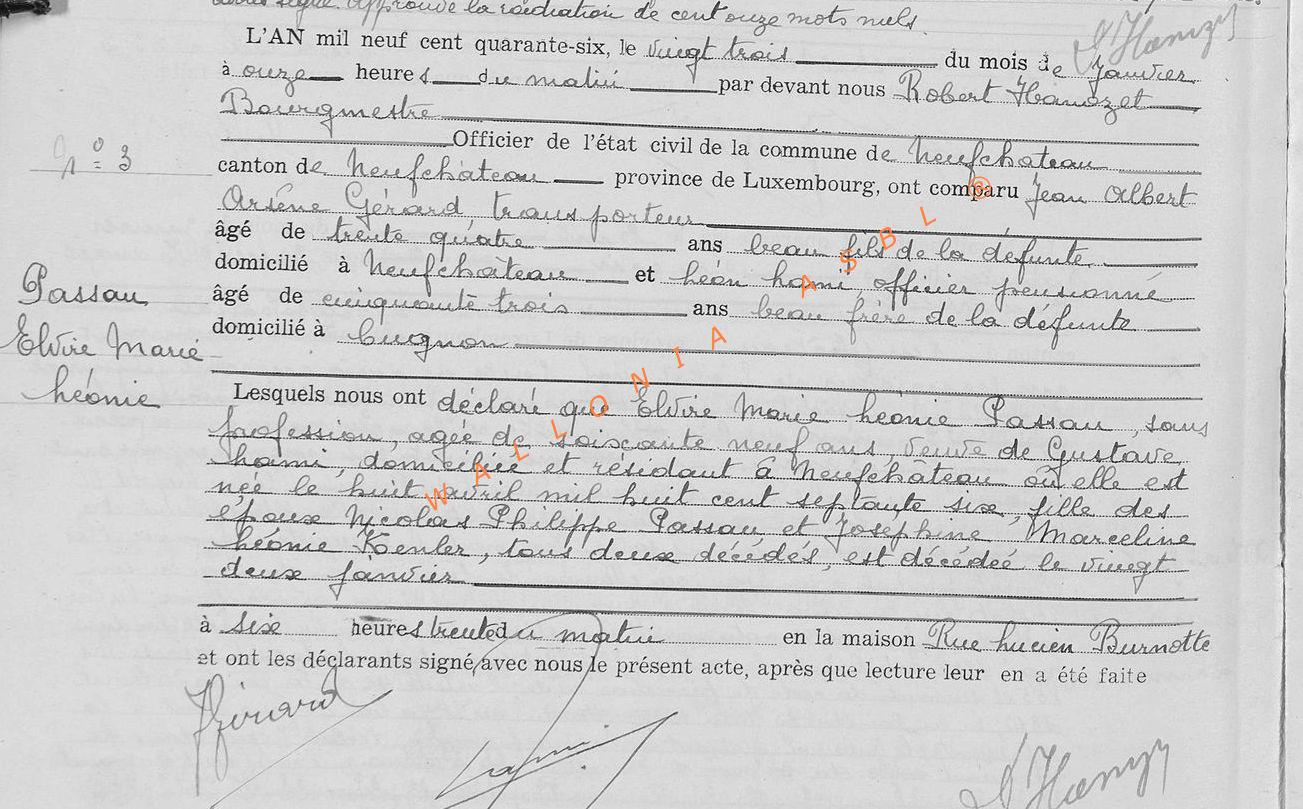 Approuvé la radiation de cent onze mots nuls.
L'AN mil neuf cent quarante-six, le vingt trois du mois de Janvier
à onze heures du matin par devant nous Robert Hanozet
Bourgmestre
Officier de l'état civil de la commune de Neufchâteau
N° 3
canton de Neufchâteau province de Luxembourg, ont comparu Jean Albert
Arsène Gérard, transporteur
âgé de trente quatre ans beau fils de la défunte
domicilié à Neufchâteau et Léon Lami, officier pensionné
âgé de cinquante trois ans beau frère de la défunte
domicilié à Cugnon
Passau
Elvire Marie
Léonie
Lesquels nous ont déclaré que Elvire Marie Léonie Passau, sans
profession, agée de soixante neuf ans, veuve de Gustave
Lami, domiciliée et résidant à Neufchâteau où elle est
née le huit avril mil huit cent septante six, fille des
époux Nicolas Philippe Passau et Joséphine Marceline
Léonie Kenler, tous deux décédés, est décédée le vingt
deux janvier
à six heures trente du matin en la maison Rue Lucien Burnotte
et ont les déclarants signé avec nous le présent acte, après que lecture leur en a été faite
Gérard
Lami
WALLONIA ASBL ®